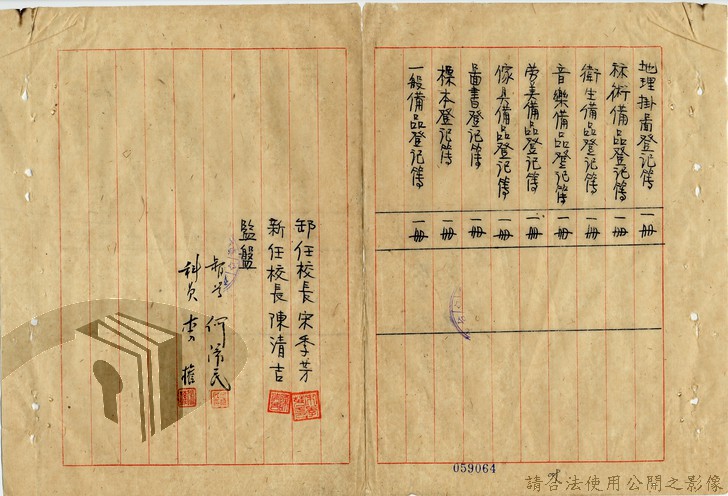 地理掛啚登記簿 一冊
秫術備品登記簿 一冊
衛生備品登記簿 一冊
音樂備品登記簿 一冊
劳美備品登記簿 一冊
傢具備品登記簿 一冊
啚書登記簿 一冊
標本登記簿 一冊
一般備品登記簿 一冊
卸任校長 宋季芳
新任校長 陳清吉
監盤
何 民
科員 李
059064
請合法使用公開之影像